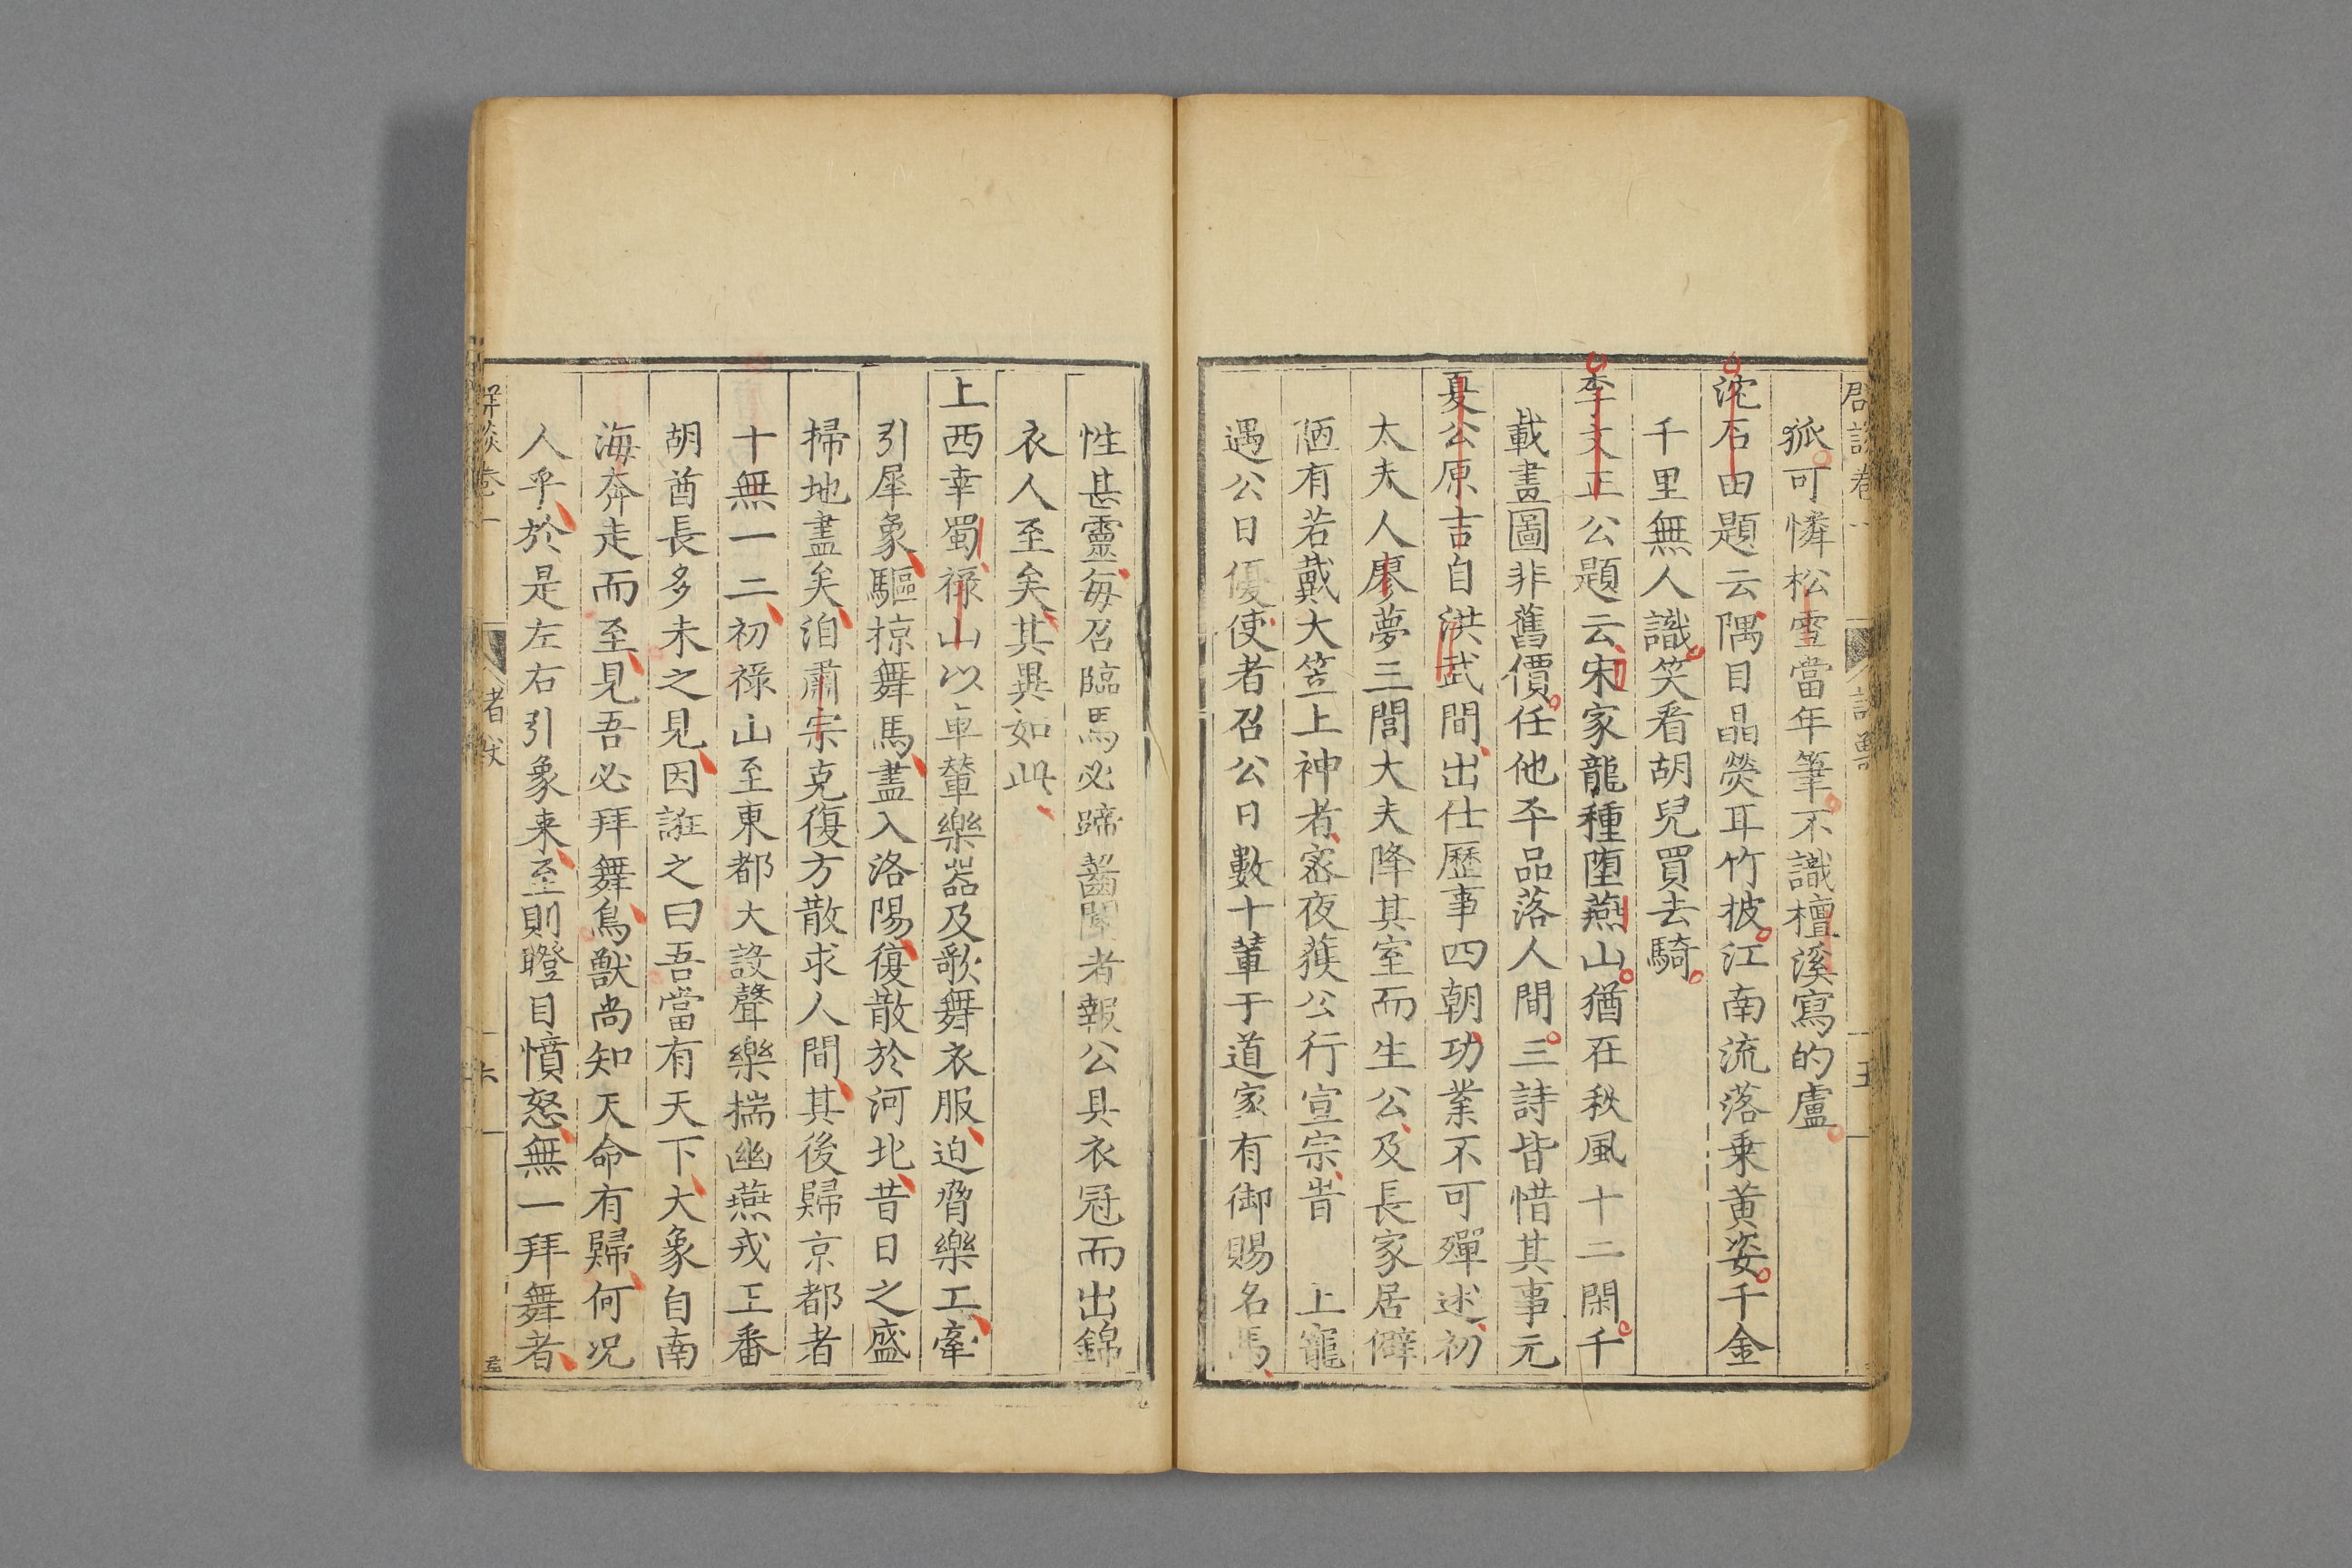 狐可憐松雪當年筆不識檀溪寫的盧
沱石田題云隅目晶熒耳竹披江南流落乗黃姿千金
千里無人識笑看胡兒買去騎
李文正公題云宋家龍種堕燕山猶在秩風十二閑千
載畫圖非舊價任他平品落人間三詩皆惜其事元
夏公原吉自洪武間出仕歷事四朝功業不可殫述初
太夫人廖夢三閭大夫降其室而生公及長家居僻
陋有若戴大笠上神者宻夜蔟公行宣宗旹 上寵
遇公日優使者召公日數十輩于道家有御賜名馬
性甚靈每召臨馬必蹄齧閽者報公具衣冠而出錦
衣人至矣其異如此
上西幸蜀祿山以車輦樂噐及歌舞衣服迫脅樂工牽
引犀象驅掠舞馬盡入洛陽復散於河北昔日之盛
掃地盡矣洎肅宗克復方散求人間其後歸京都者
十無一二初祿山至東都大設聲樂揣幽燕戎王番
胡酋長多未之見因誑之曰吾當有天下大象自南
海奔走而至見吾必拜舞鳥獸尚知天命有歸何况
人乎於是左右引象来至則瞪目憤怒無一拜舞者
群談卷一
六